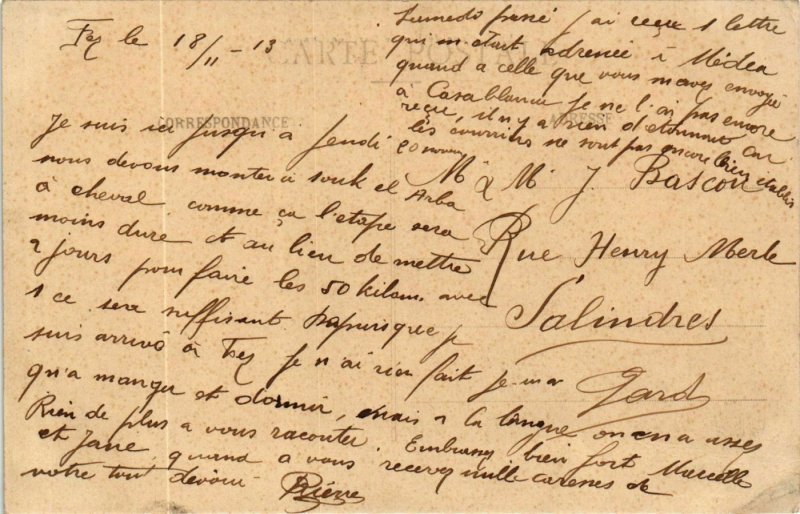 Fez le 18/11-13
CARTE POSTALE
CORRESPONDANCE
ADRESSE
Je suis ici jusqu'a Jeudi 20 nov
nous devons monter à souk el Arba
à cheval comme ça l'etape sera
moins dure et au lieu de mettre
2 jours pour faire les 50 kilom. avec
1 ce sera suffisant depuis que je
suis arrivé à Fez je n'ai rien fait
qu'a manger et dormir, mais a la longue on en a assez
Rien de plus a vous raconter. Embrassez bien fort Marcelle
et Jane, quand a vous recevez mille caresses de
votre tout dévoué Pierre
Samedi passé j'ai reçu 1 lettre
qui m'était adressée à Médea
quand a celle que vous m'avez envoyé
à Casablanca je ne l'ai pas encore
reçu, il n'y a rien d'etonnant car
les courriers ne sont pas encore bien établis
Mr & Me J. Bascou
Rue Henry Merle
Salindres
Gard